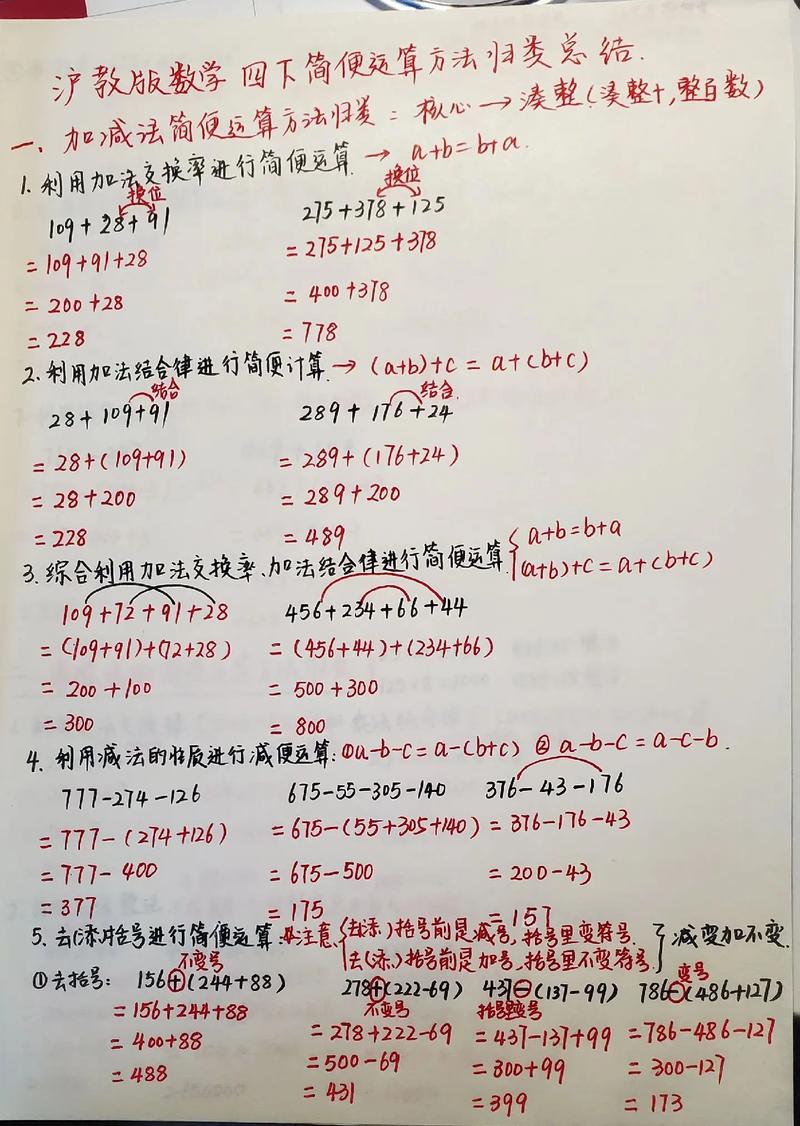 沪教版数学 四下简便运算方法归类总结.
一、加减法简便运算方法归类：核心→凑整(凑整十,整百数)
1. 利用加法交换率进行简便运算. → a+b=b+a.
换位 换位
109+28+91 275+378+125
=109+91+28 =275+125+378
=200+28 =400+378
=228 =778
2. 利用加法结合律进行简便计算. → (a+b)+c = a+(b+c)
结合 结合.
28+109+91 289+176+24
=28+(109+91) =289+(176+24)
=28+200 =289+200
=228 =489
3. 综合利用加法交换率、加法结合律进行简便运算. { a+b=b+a
(a+b)+c=a+(b+c)
109+72+91+28 456+234+66+44
=(109+91)+(72+28) =(456+44)+(234+66)
=200+100 =500+300
=300 =800
4. 利用减法的性质进行减便运算:①a-b-c=a-(b+c) ② a-b-c=a-c-b.
777-274-126 675-55-305-140 376-43-176
=777-(274+126) =675-(55+305+140) =376-176-43
=777-400 =675-500 =200-43
=377 =175 =157
5. 去(添)括号进行简便运算. 注意、{ 去(添)括号前是减号,括号里变符号. } 减变加不变.
去(添)括号前是加号,括号里不变符号.
①去括号: 不变号 变号
156+(244+88) 278+(222-69) 437-(137-99) 786-(486+127)
不变号 括号里变号
=156+244+88 =278+222-69 =437-137+99 =786-486-127
=400+88 =500-69 =300+99 =300-127
=488 =431 =399 =173